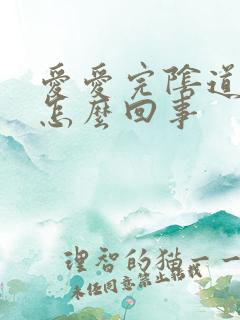 愛愛完陰道
怎麼回事
理智的猫一一
未任同意禁止转载